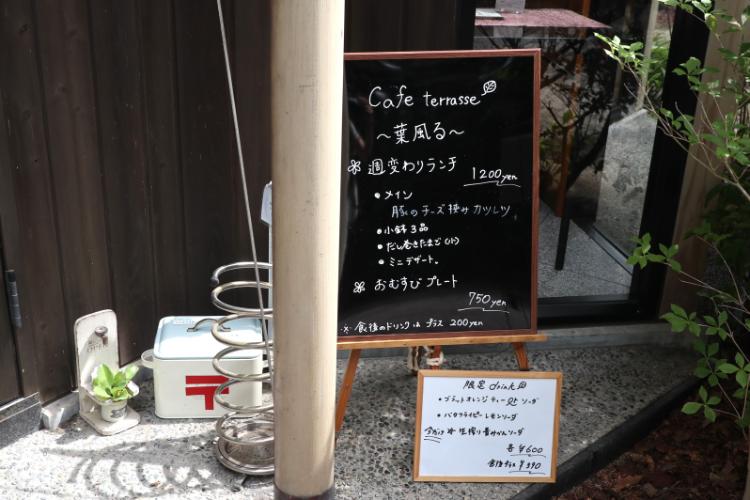 Cafe terrasse
〜葉風る〜
週変わりランチ
1200yen
・メイン
豚のチーズ挟みカツレツ
・小鉢3品
・だし巻きたまご(小)
・ミニデザート。
おむすびプレート
750yen
※食後のドリンクはプラス 200yen
限定 drink
・ブラッドオレンジティー or ソーダ
・バタフライピーレモンソーダ
生搾り青みかんソーダ
各¥600
食後プラス¥390